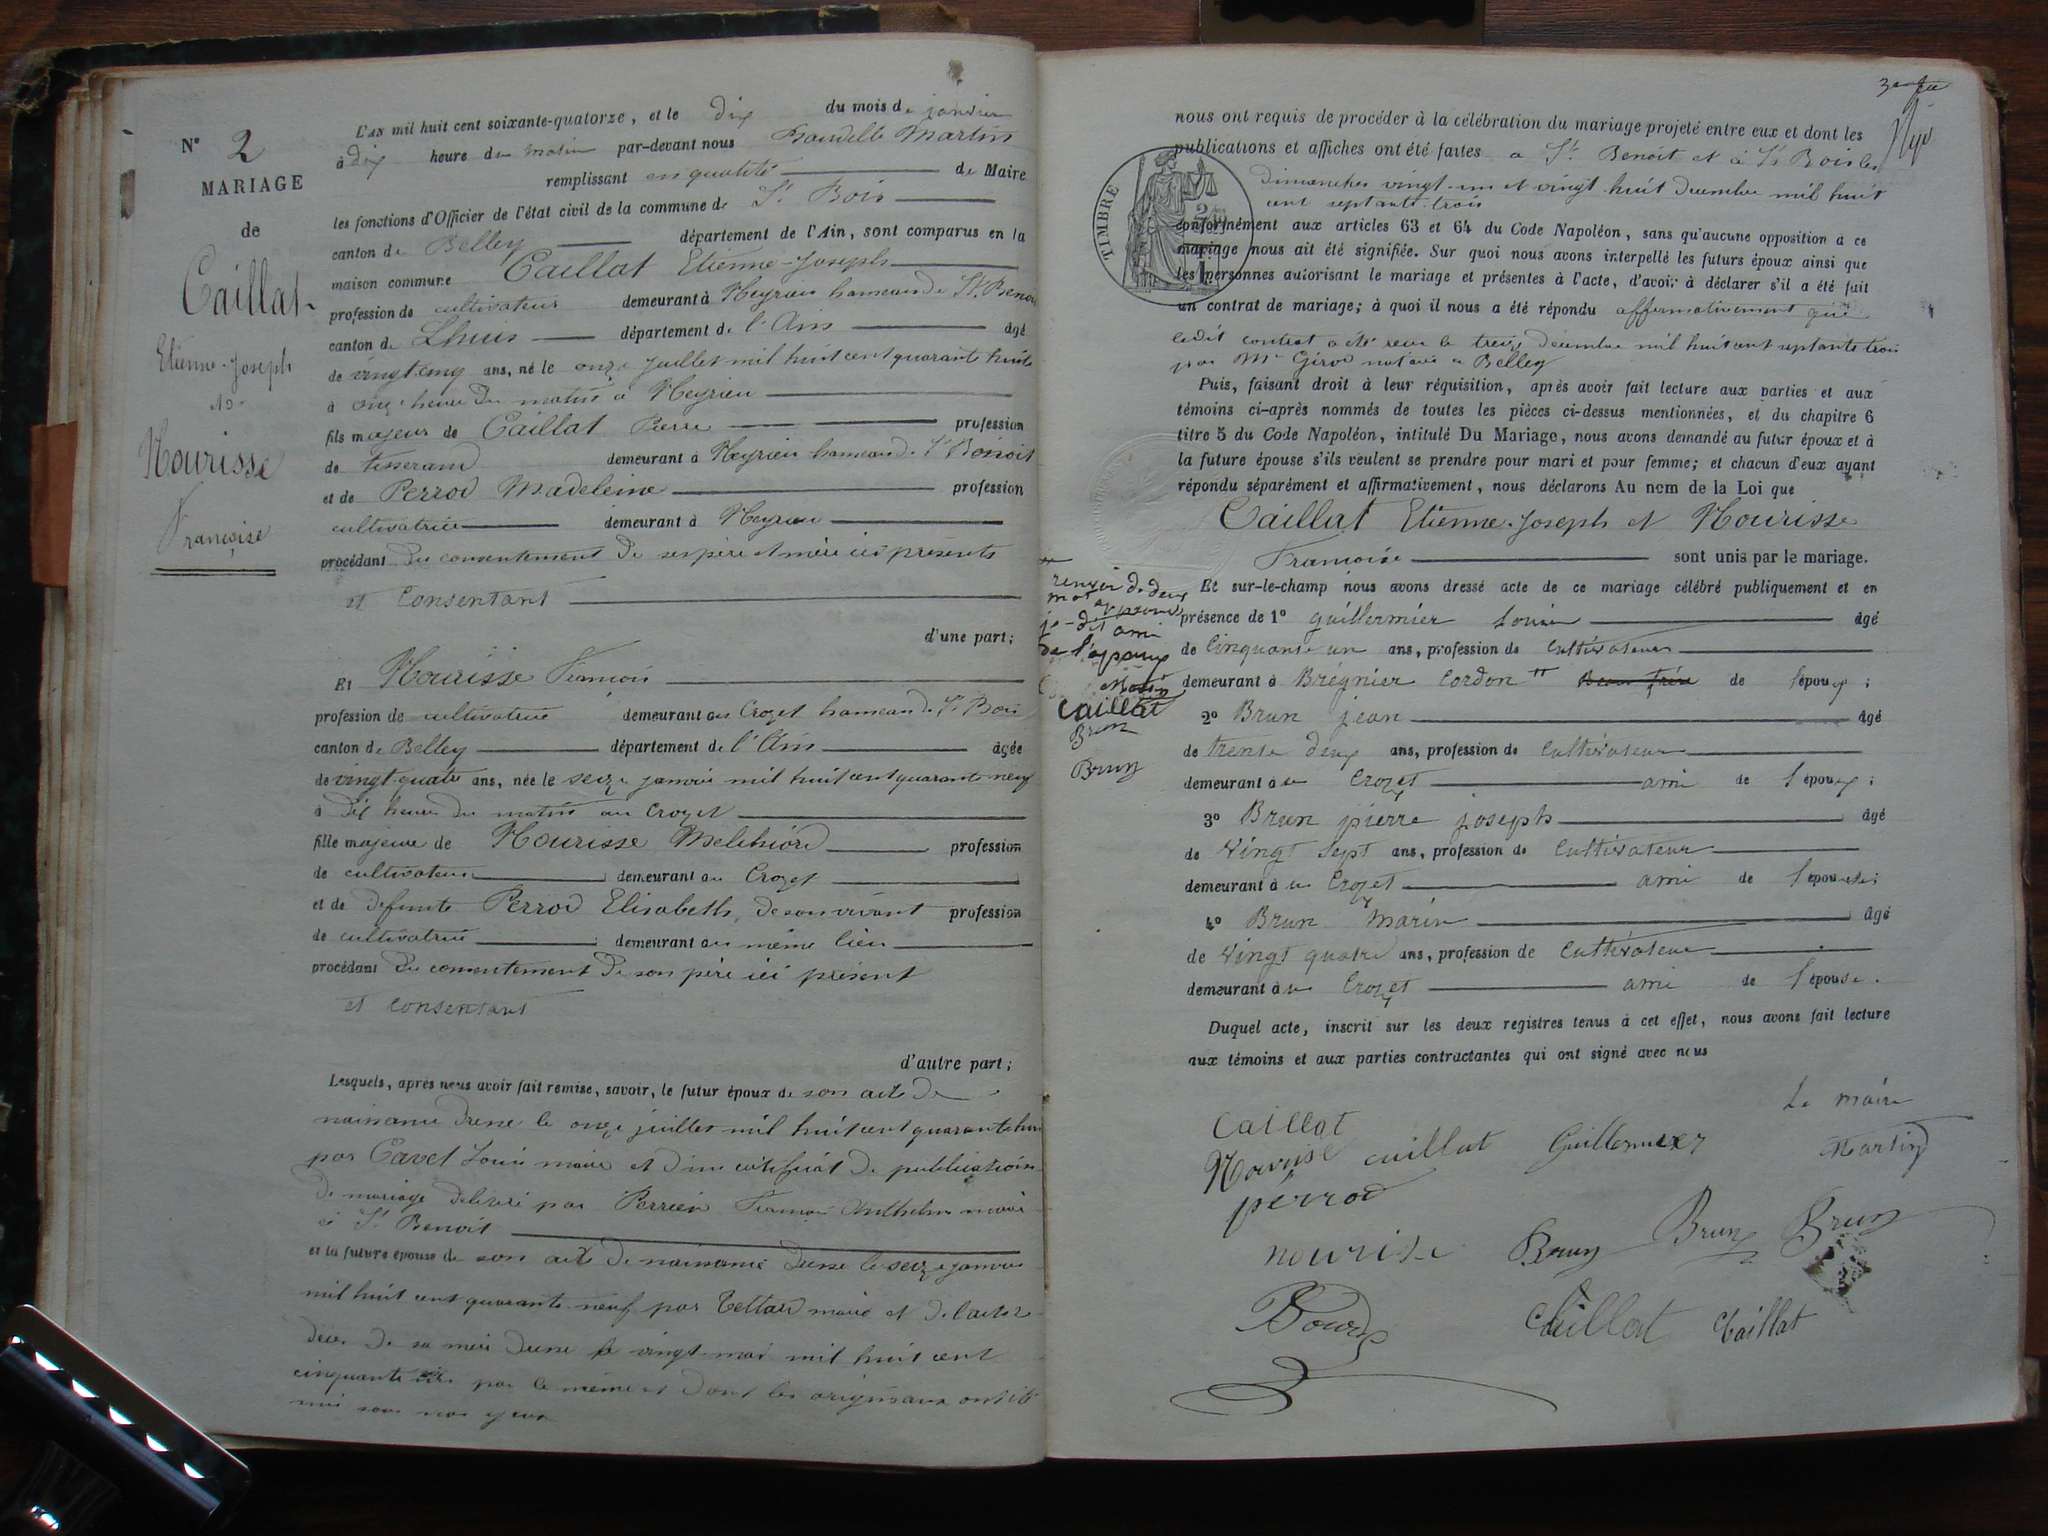 N° 2
MARIAGE
de
Caillat
Etienne-Joseph
Nourisse
Françoise
L'an mil huit cent soixante-quatorze, et le dix du mois de janvier
à dix heure du matin par-devant nous Martin
remplissant en qualité de Maire
les fonctions d'Officier de l'état civil de la commune de St Bois
canton de Belley département de l'Ain, sont comparus en la
maison commune Caillat Etienne-Joseph
profession de cultivateur demeurant à Meyrieu hameau de St Benoit
canton de Lhuis département de l'Ain âgé
de vingt cinq ans, né le onze juillet mil huit cent quarante huit
à onze heure du matin à Meyrieu
fils majeur de Caillat Pierre profession
de tisserand demeurant à Meyrieu hameau de St Benoit
et de Perrod Madeleine profession
cultivatrice demeurant à Meyrieu
procédant du consentement de ses père et mère ici présents
et consentant
d'une part;
Et Nourisse François
profession de cultivatrice demeurant au Crozet hameau de St Bois
canton de Belley département de l'Ain âgée
de vingt quatre ans, née le seize janvier mil huit cent quarante neuf
à dix heures du matin au Crozet
fille majeure de Nourisse Melchiord profession
de cultivateur demeurant au Crozet
et de défunte Perrod Elisabeth, de son vivant profession
de cultivatrice demeurant au même lieu
procédant du consentement de son père ici présent
et consentant
d'autre part;
Lesquels, après nous avoir fait remise, savoir, le futur époux de son acte de
naissance dressé le onze juillet mil huit cent quarante huit
par Cavet Louis maire et d'un certificat de publication
de mariage délivré par Perrier François Anthelme maire
à St Benoit
et la future épouse de son acte de naissance dressé le seize janvier
mil huit cent quarante-neuf par Tettaz maire et de l'acte de
décès de sa mère dressé le vingt mai mil huit cent
cinquante par le même et dont les originaux ont été
mis sous nos yeux
nous ont requis de procéder à la célébration du mariage projeté entre eux et dont les
publications et affiches ont été faites a St Benoit et à St Bois les
dimanches vingt-un et vingt huit décembre mil huit
cent septante-trois
TIMBRE
conformément aux articles 63 et 64 du Code Napoléon, sans qu'aucune opposition à ce
mariage nous ait été signifiée. Sur quoi nous avons interpellé les futurs époux ainsi que
les personnes autorisant le mariage et présentes à l'acte, d'avoir à déclarer s'il a été fait
un contrat de mariage; à quoi il nous a été répondu affirmativement que
ledit contrat a été reçu le treize décembre mil huit cent septante trois
par Me Girod notaire à Belley
Puis, faisant droit à leur réquisition, après avoir fait lecture aux parties et aux
témoins ci-après nommés de toutes les pièces ci-dessus mentionnées, et du chapitre 6
titre 5 du Code Napoléon, intitulé Du Mariage, nous avons demandé au futur époux et à
la future épouse s'ils veulent se prendre pour mari et pour femme; et chacun d'eux ayant
répondu séparément et affirmativement, nous déclarons Au nom de la Loi que
Caillat Etienne-Joseph et Nourisse
Françoise sont unis par le mariage.
Et sur-le-champ nous avons dressé acte de ce mariage célébré publiquement et en
présence de 1° guillermier Louis âgé
de Cinquante un ans, profession de Cultivateur
demeurant à Brégnier Cordon beau frère de l'époux;
2° Brun jean âgé
de trente deux ans, profession de Cultivateur
demeurant à u Crozet ami de l'époux;
3° Brun pierre joseph âgé
de Vingt Sept ans, profession de Cultivateur
demeurant à u Crozet ami de l'épouse;
4° Brun Marin âgé
de Vingt quatre ans, profession de Cultivateur
demeurant à u Crozet ami de l'épouse.
Duquel acte, inscrit sur les deux registres tenus à cet effet, nous avons fait lecture
aux témoins et aux parties contractantes qui ont signé avec nous
renvoi de deux
mot
ami
de l'époux
Caillat
Brun
Brun
Le maire
Caillat
Nourise caillat Guillermier Martin
perrod
nourise Brun Brun Brun
Caillat Caillat